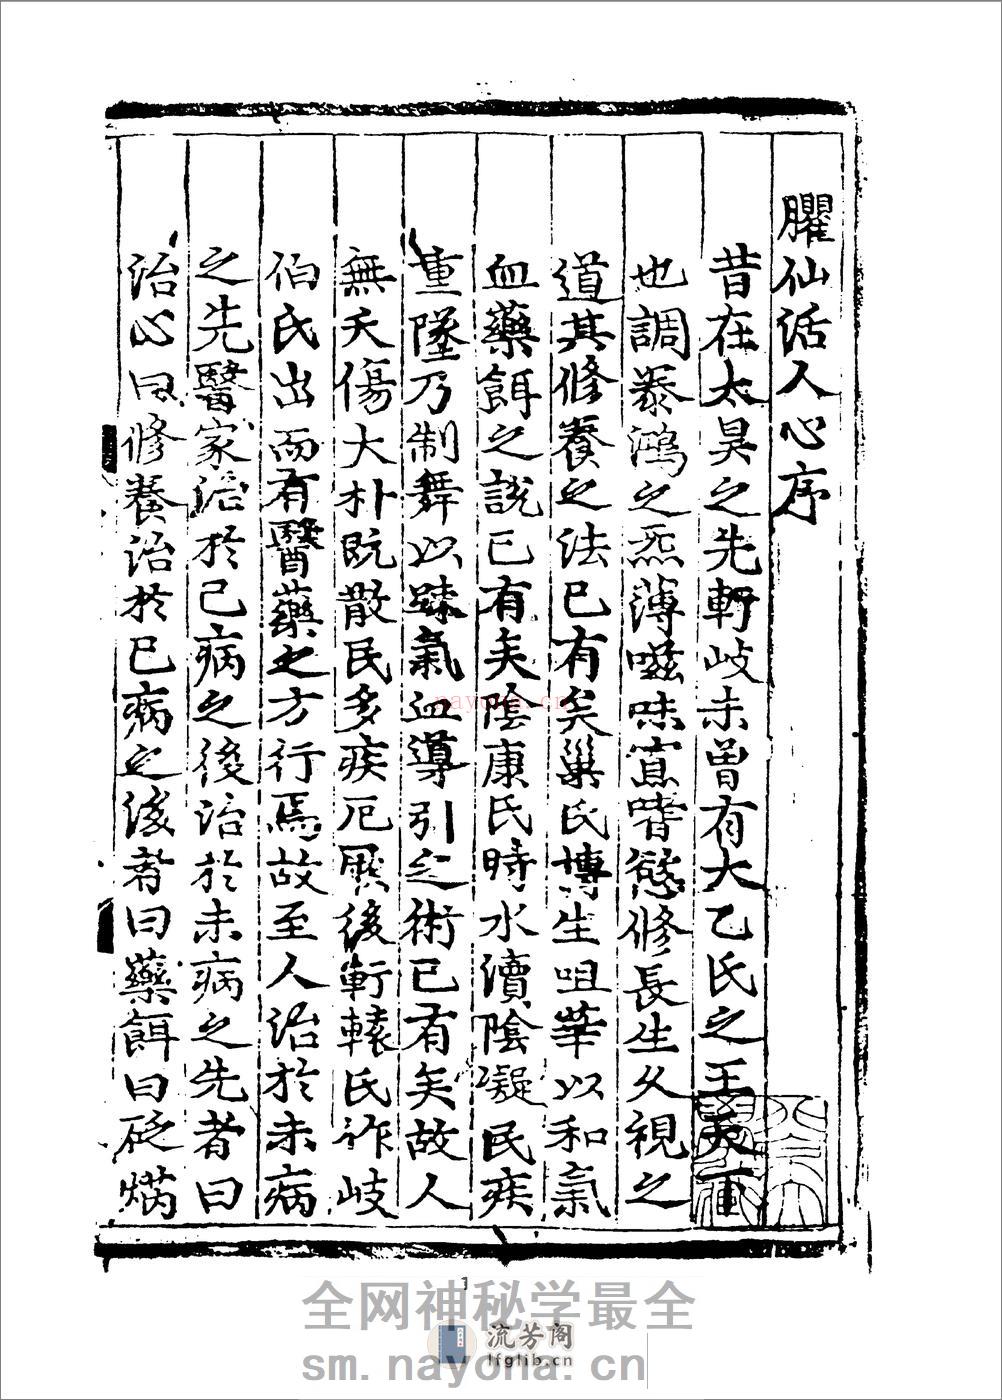 臞仙活人心序
昔在太昊之先軒岐未曾有大乙氏之王天下
也調㬥鴻之炁薄嗞味寡嗜慾修長生久視之
道其修養之法已有矣巢氏摶生咀華以和氣
血藥餌之說已有矣陰康氏時水瀆陰凝民疾
重墜乃制舞以踈氣血導引之術已有矣故人
無夭傷大朴既散民多疾厄厥後軒轅氏作岐
伯氏出而有醫藥之方行焉故至人治於未病
之先醫家治於已病之後治於未病之先者曰
治心曰修養治於已病之後者曰藥餌曰砭焫
1
全网神秘学最全
流芳阁
lfglib.cn
sm.nayona.cn
nayona.cn